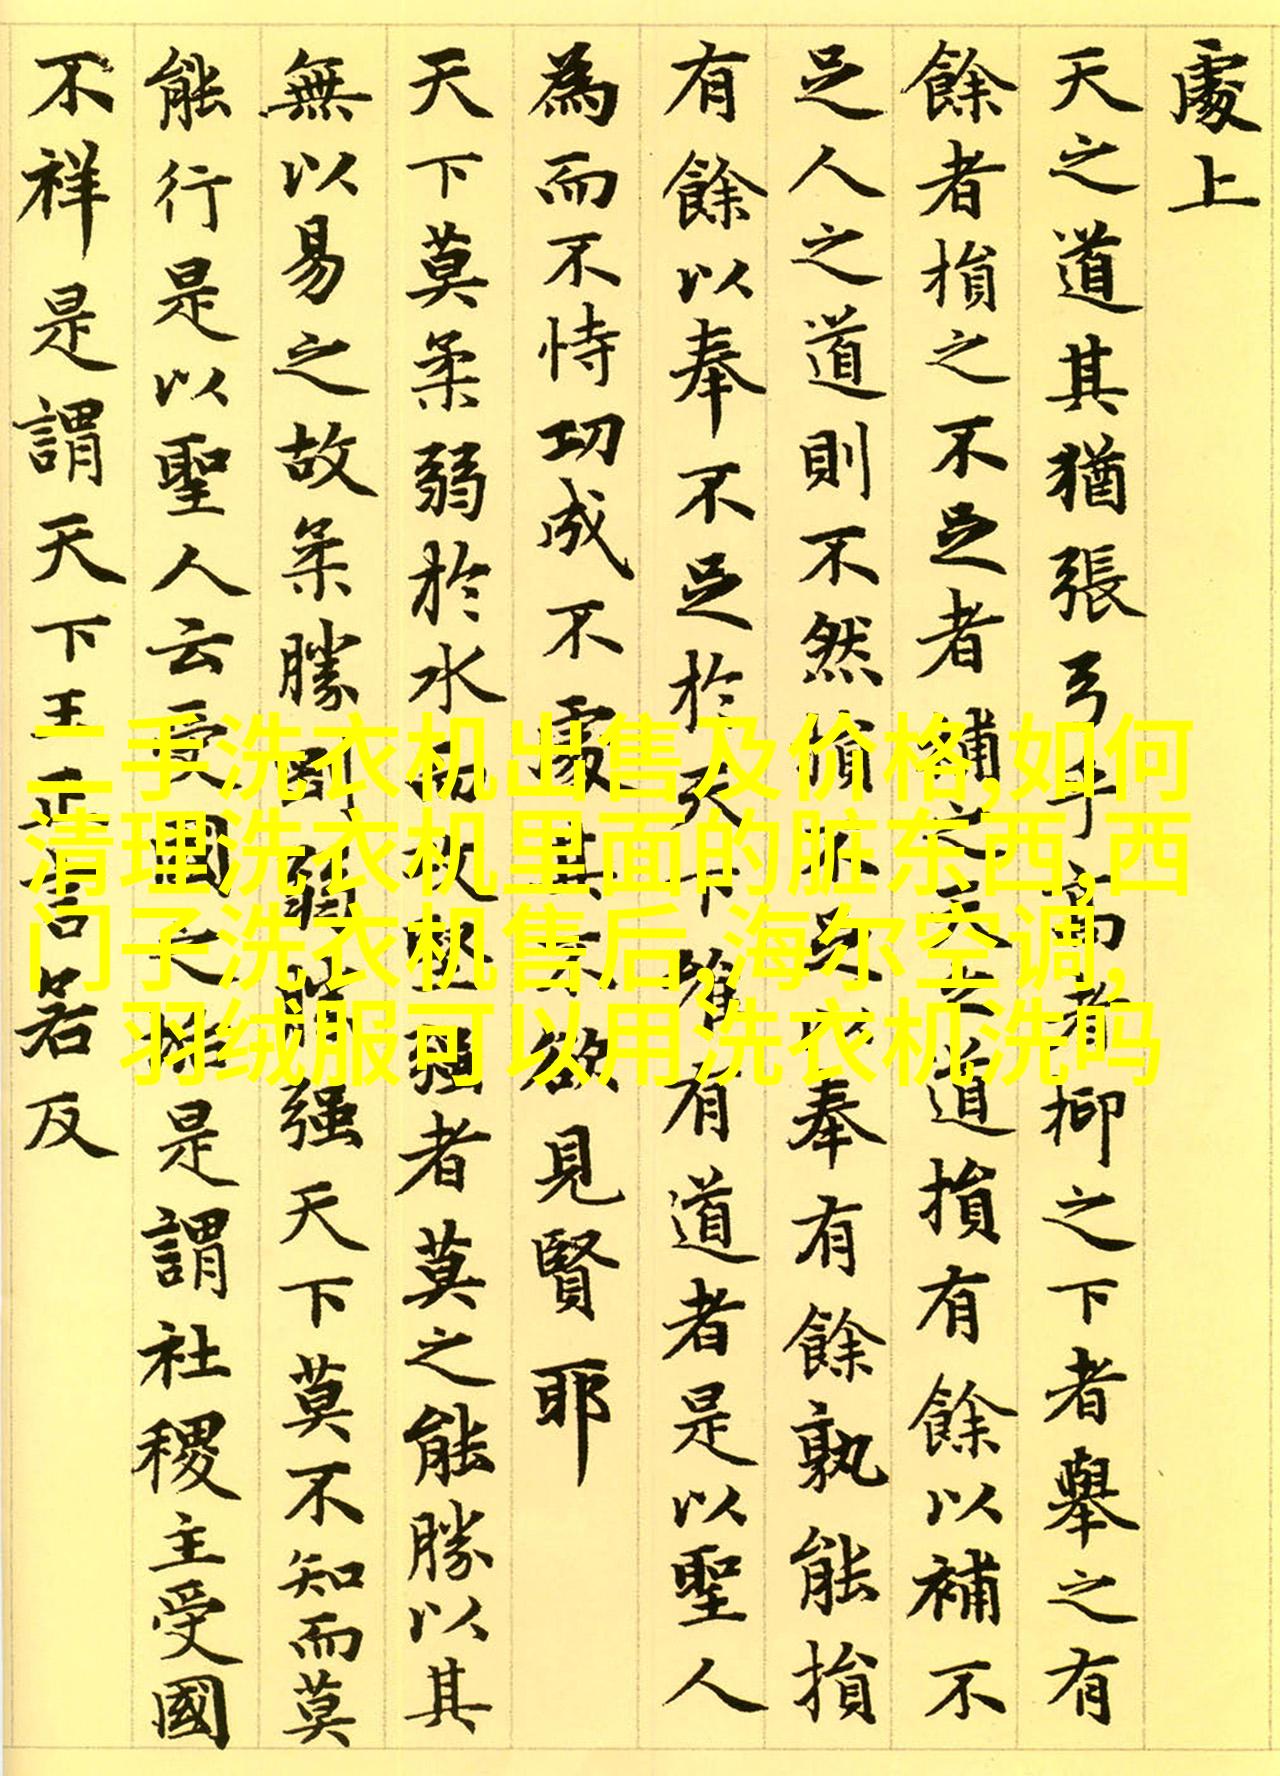 處上
天之道其猶張弓乎高者抑之下者舉之有
餘者損之不足者補之天之道損有餘以補不
足人之道則不然損不足以奉有餘孰能損
有餘以奉不足於天下唯有道者是以聖人
為而不恃功成不處其不欲見賢耶
天下莫柔弱於水而攻堅强者莫之能勝以其
無以易之故柔勝剛弱勝强天下莫不知而莫
能行是以聖人云受國之垢是謂社稷主受國
不祥是謂天下王正言若反
二手洗衣机出售及价格,如何
清理洗衣机里面的脏东西,西
门子洗衣机售后,海尔空调,
羽绒服可以用洗衣机洗吗